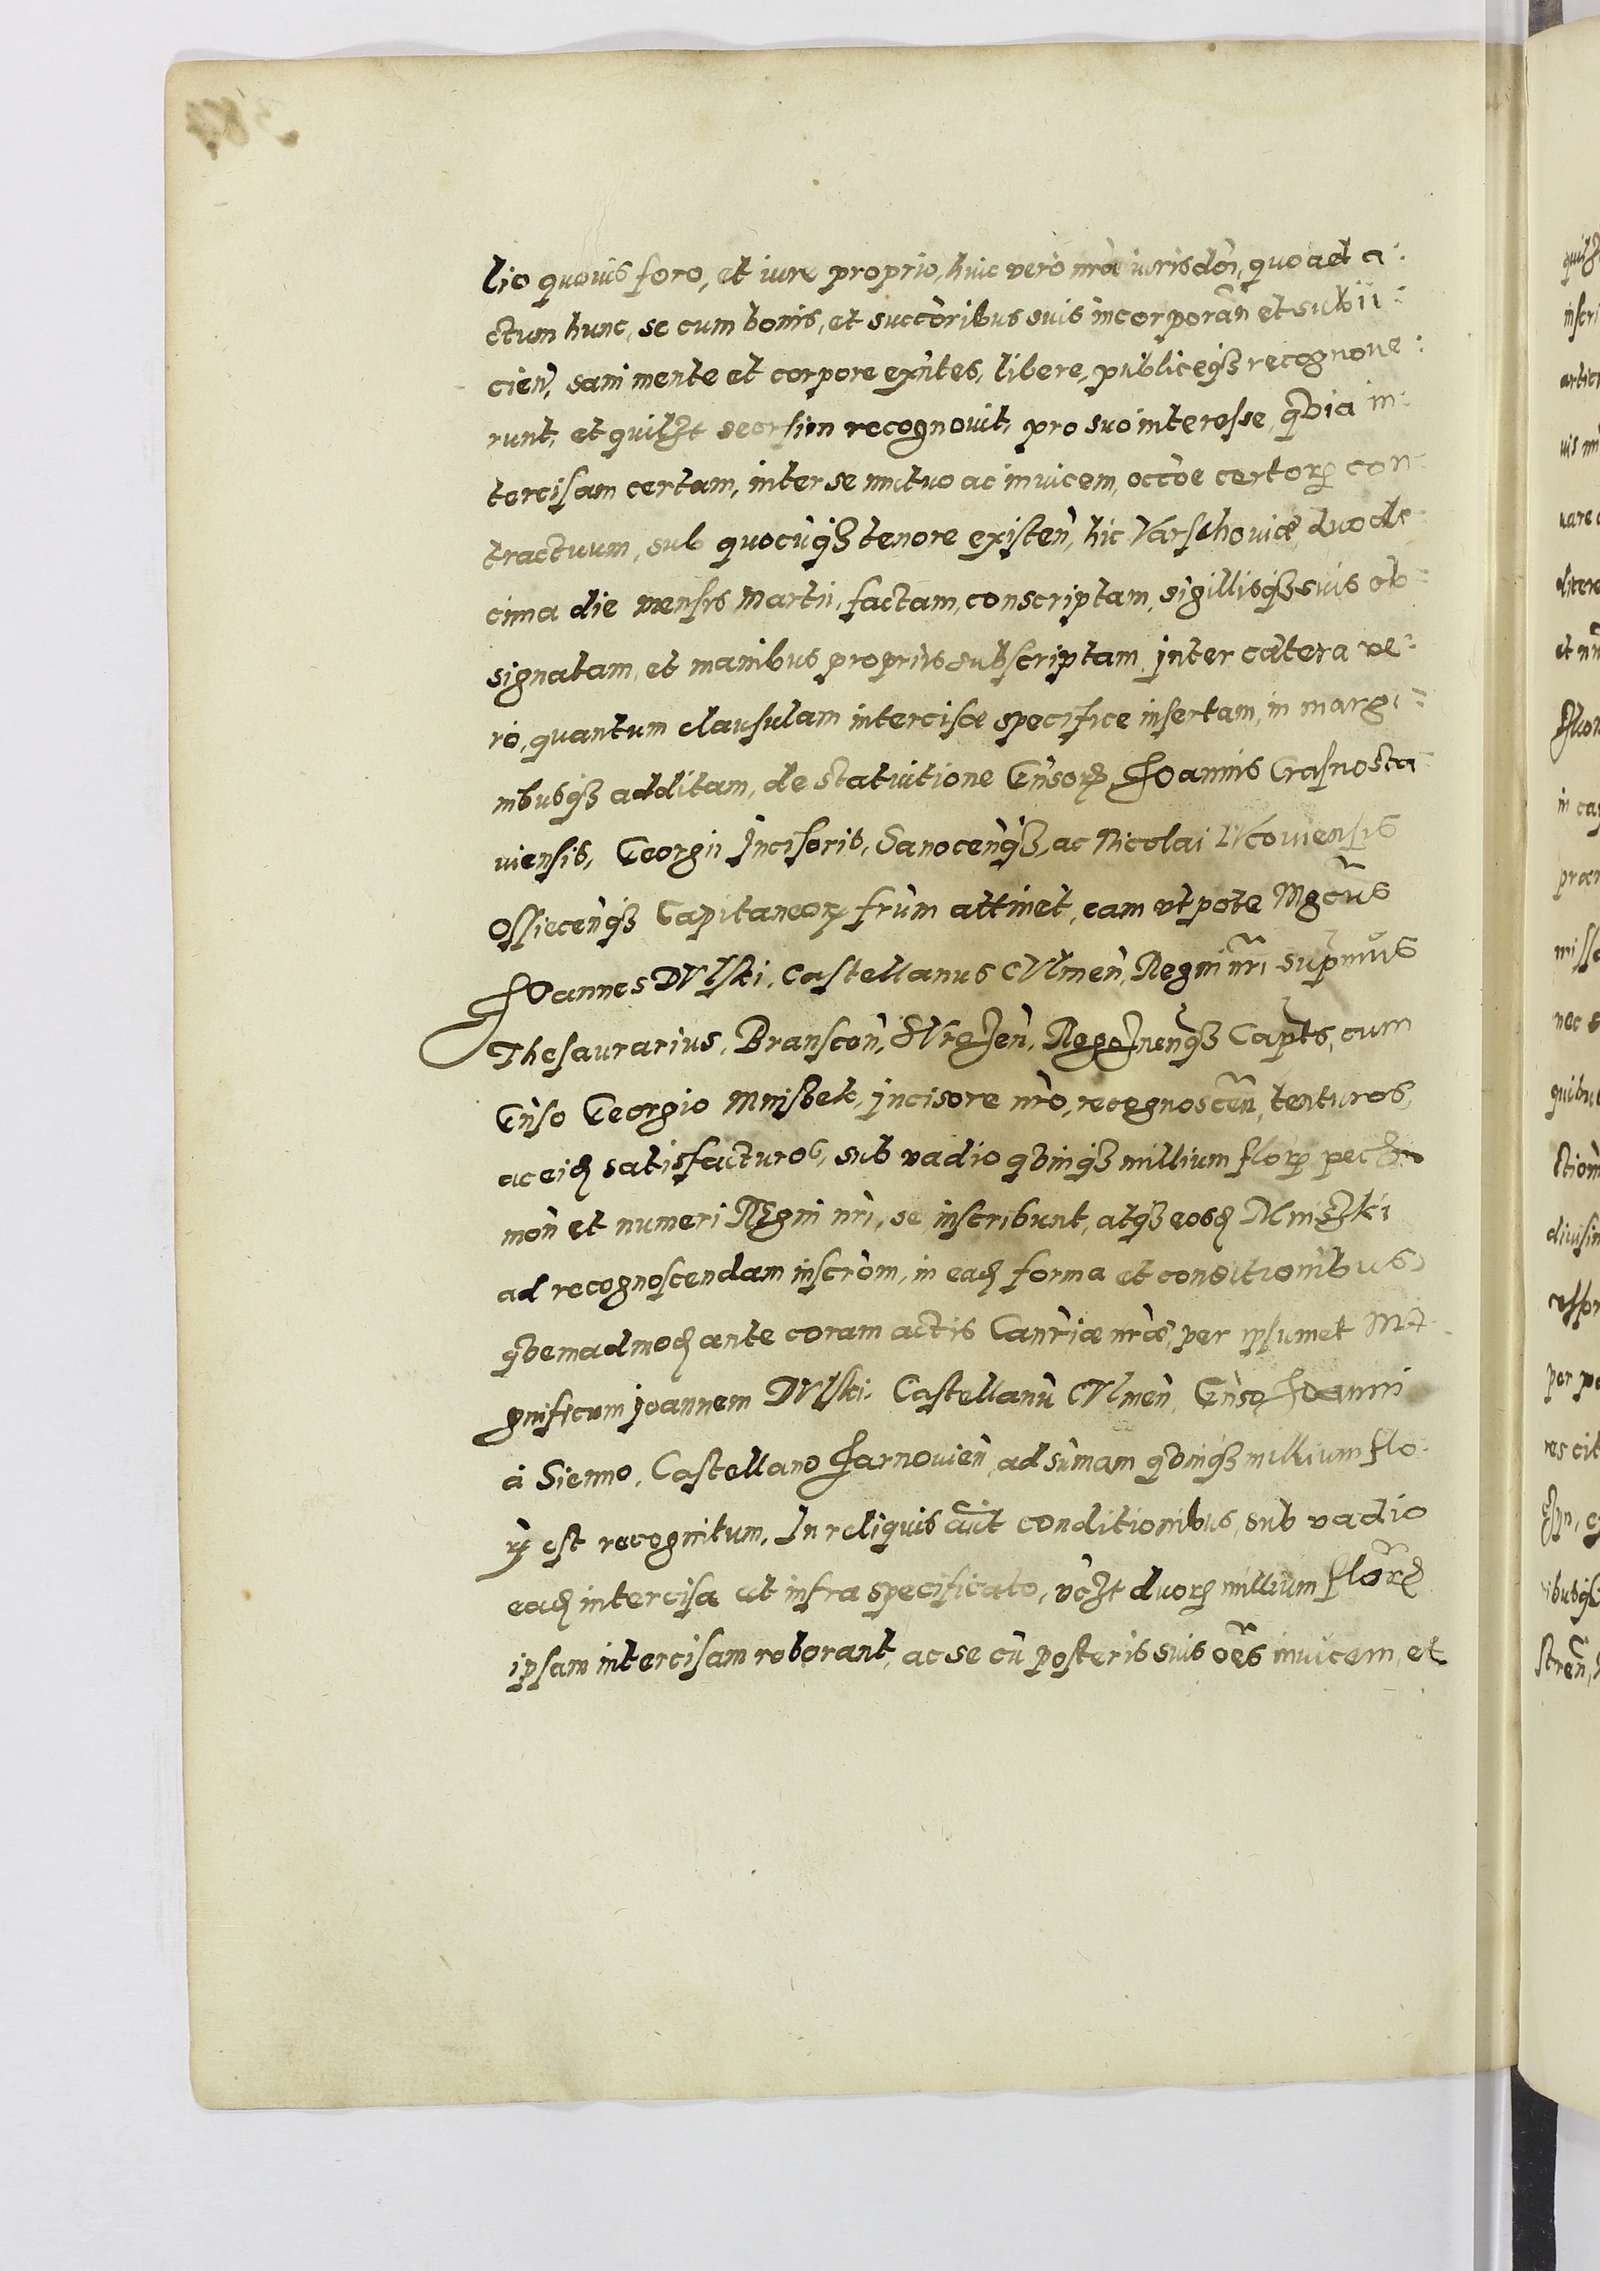 lio quovis foro, et iure proprio, huic vero nr̃æ iurisdõi, quo ad a:
ctum hunc, se cum bonis, et succõribus suis incorporañ et subii:
cieñ, sani mente et corpore exñtes, libere, publiceqȝ recognove:
runt, et quilȝt seorsim recognovit, pro suo interesse, qvia in:
tercisam certam, inter se mutuo ac invicem, occõe certorꝝ con:
tractuum, sub quocũqȝ tenore existeñ, hic Varschoviæ duode:
cima die mensis Martii, factam, conscriptam, sigillisqȝ suis ob:
signatam, et manibus propriis subscriptam, inter cætera ve:
ro, quantum clausulam intercisæ specifice insertam, in margi:
nibusqȝ additam, de statuitione Gñsorꝝ Joannis Crasnosta
viensis, Georgii Incisoris, Sanoceñqȝ, ac Nicolai Lucoviensis
Ossieceñqȝ Capitaneorꝝ fr̃um attinet, eam utpote Mgcũs
Joannes Dulski, Castellanus Culmeñ, Regni nr̃i supr̃mus
Thesaurarius, Bransceñ, Regȝneñqȝ Capts, cum
Gñso Georgio Mnisek, Incisore nr̃o, recognosceñ, tenturos,
ac eidꝫ satisfacturos, sub vadio qvinqȝ millium florꝝ pec
moñ et numeri Regni nr̃i, se inscribunt, atqȝ eosdꝫ Mnisȝki
ad recognoscendam inscrõm, in eadꝫ forma et conditionibus
qvemadmodꝫ ante coram actis Canr̃iæ nr̃æ, per ipsumet Ma
gnificum Joannem Dulski, Castellanũ Culmeñ, Gñso Joanni
à Sienno, Castellano Zarnovieñ, ad sũmam qvinqȝ millium flo
rꝝ est recognitum. In reliquis aũt conditionibus, sub vadio
eadꝫ intercisa ut infra specificato, vȝt duorꝝ millium florꝝ
ipsam intercisam roborant, ac se cũ posteris suis oẽs invicem, et